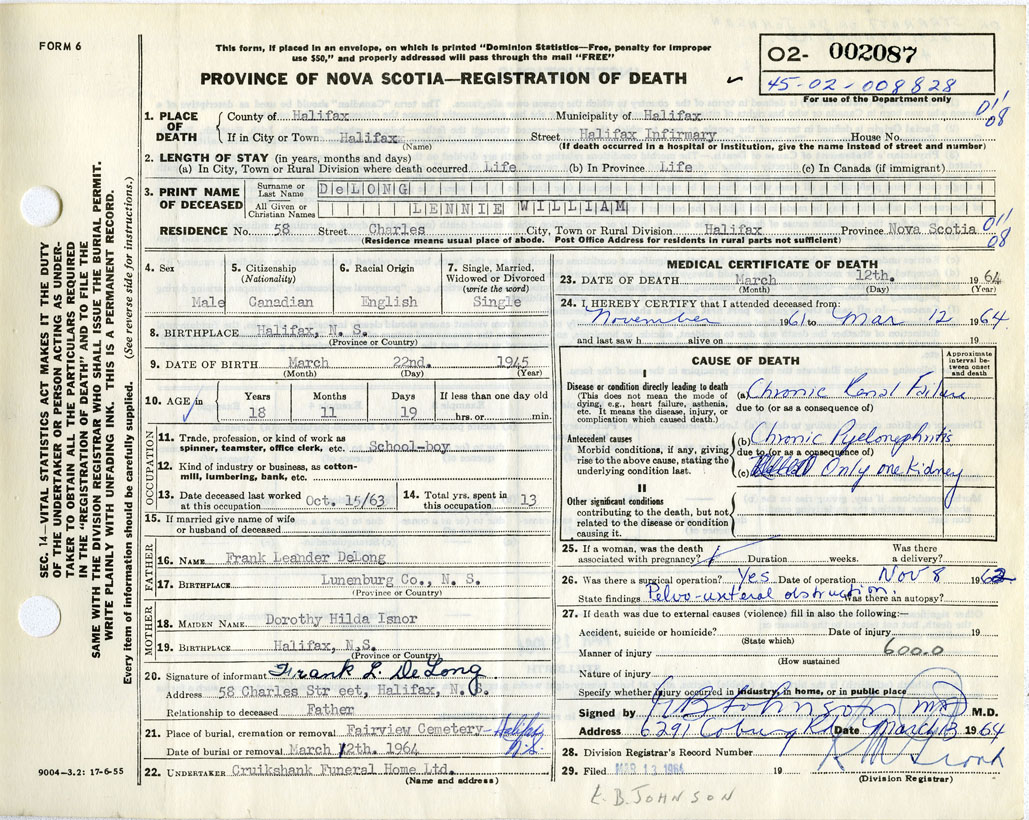 FORM 6
This form, if placed in an envelope, on which is printed "Dominion Statistics—Free, penalty for improper
use $50," and properly addressed will pass through the mail "FREE"
PROVINCE OF NOVA SCOTIA—REGISTRATION OF DEATH
02- 002087
45-02-008828
For use of the Department only
SEC. 14—VITAL STATISTICS ACT MAKES IT THE DUTY
OF THE UNDERTAKER OR PERSON ACTING AS UNDER-
TAKER TO OBTAIN ALL THE PARTICULARS REQUIRED
IN THE "REGISTRATION OF DEATH" AND TO FILE THE
SAME WITH THE DIVISION REGISTRAR WHO SHALL ISSUE THE BURIAL PERMIT.
WRITE PLAINLY WITH UNFADING INK. THIS IS A PERMANENT RECORD.
Every item of information should be carefully supplied. (See reverse side for instructions.)
1. PLACE OF DEATH
County of Halifax Municipality of Halifax 01'
08
If in City or Town Halifax Street Halifax Infirmary House No.
(Name) (If death occurred in a hospital or institution, give the name instead of street and number)
2. LENGTH OF STAY (in years, months and days)
(a) In City, Town or Rural Division where death occurred Life (b) In Province Life (c) In Canada (if immigrant)
3. PRINT NAME OF DECEASED
Surname or Last Name DeLONG
All Given or Christian Names LENNIE WILLIAM
RESIDENCE No. 58 Street Charles City, Town or Rural Division Halifax Province Nova Scotia 01'
08
(Residence means usual place of abode. Post Office Address for residents in rural parts not sufficient)
4. Sex 5. Citizenship (Nationality) 6. Racial Origin 7. Single, Married, Widowed or Divorced (write the word)
Male Canadian English Single
8. BIRTHPLACE Halifax, N. S.
(Province or Country)
9. DATE OF BIRTH March 22nd. 1945
(Month) (Day) (Year)
10. AGE in Years Months Days If less than one day old
18 11 19 hrs. or min.
OCCUPATION
11. Trade, profession, or kind of work as
spinner, teamster, office clerk, etc. School-boy
12. Kind of industry or business, as cotton-
mill, lumbering, bank, etc.
13. Date deceased last worked at this occupation Oct. 15/63 14. Total yrs. spent in this occupation 13
15. If married give name of wife
or husband of deceased
FATHER
16. NAME Frank Leander DeLong
17. BIRTHPLACE Lunenburg Co., N. S.
(Province or Country)
MOTHER
18. MAIDEN NAME Dorothy Hilda Isnor
19. BIRTHPLACE Halifax, N.S.
(Province or Country)
20. Signature of informant Frank L. DeLong
Address 58 Charles Str eet, Halifax, N. S.
Relationship to deceased Father
21. Place of burial, cremation or removal Fairview Cemetery- Halifax
N.S.
Date of burial or removal March 12th. 1964
22. UNDERTAKER Cruikshank Funeral Home Ltd.
(Name and address)
9004—3.2: 17-6-55
MEDICAL CERTIFICATE OF DEATH
23. DATE OF DEATH March 12th. 1964
(Month) (Day) (Year)
24. I, HEREBY CERTIFY that I attended deceased from:
November 1961 to Mar 12 1964
and last saw h alive on 19
CAUSE OF DEATH
Approximate interval between onset and death
I
Disease or condition directly leading to death
(This does not mean the mode of
dying, e.g., heart failure, asthenia,
etc. It means the disease, injury, or
complication which caused death.)
(a) Chronic Renal Failure
due to (or as a consequence of)
Antecedent causes
Morbid conditions, if any, giving
rise to the above cause, stating the
underlying condition last.
(b) Chronic Pyelonephritis
due to (or as a consequence of)
(c) Only one Kidney
II
Other significant conditions
contributing to the death, but not
related to the disease or condition
causing it.
25. If a woman, was the death
associated with pregnancy? Duration weeks. Was there
a delivery?
26. Was there a surgical operation? Yes Date of operation Nov 8 1962
State findings Pelvo-ureteral obstruction. Was there an autopsy?
27. If death was due to external causes (violence) fill in also the following:—
Accident, suicide or homicide? Date of injury 19
(State which)
Manner of injury 600.0
(How sustained
Nature of injury
Specify whether injury occurred in industry, in home, or in public place
Signed by K B Johnson MD M.D.
Address 6291 Coburg Rd Date March 13 1964
28. Division Registrar's Record Number
29. Filed MAR 13 1964
(Division Registrar)
K. B. JOHNSON